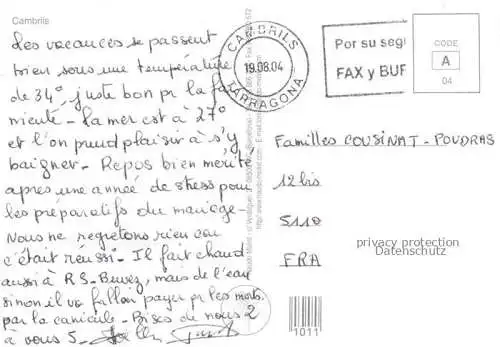 Cambrils
Les vacances se passent
bien sous une température
de 34° juste bon pr la far
niente - La mer est à 27°
et l'on prend plaisir à s'y
baigner - Repos bien mérité,
après une année de stress pour
les préparatifs du mariage -
Nous ne regretons rien car
c'était réussi - Il fait chaud
aussi à R.S - Buvez, mais de l'eau
sinon il va falloir payer pr les morts
par la canicule - Bises de nous 2
à vous 5 -
CAMBRILS
19.08.04
TARRAGONA
Por su segu
FAX y BUR
CODE
A
04
Familles COUSINAT - POUDRAS
12 bis
5110
FRA
privacy protection
Datenschutz
1011